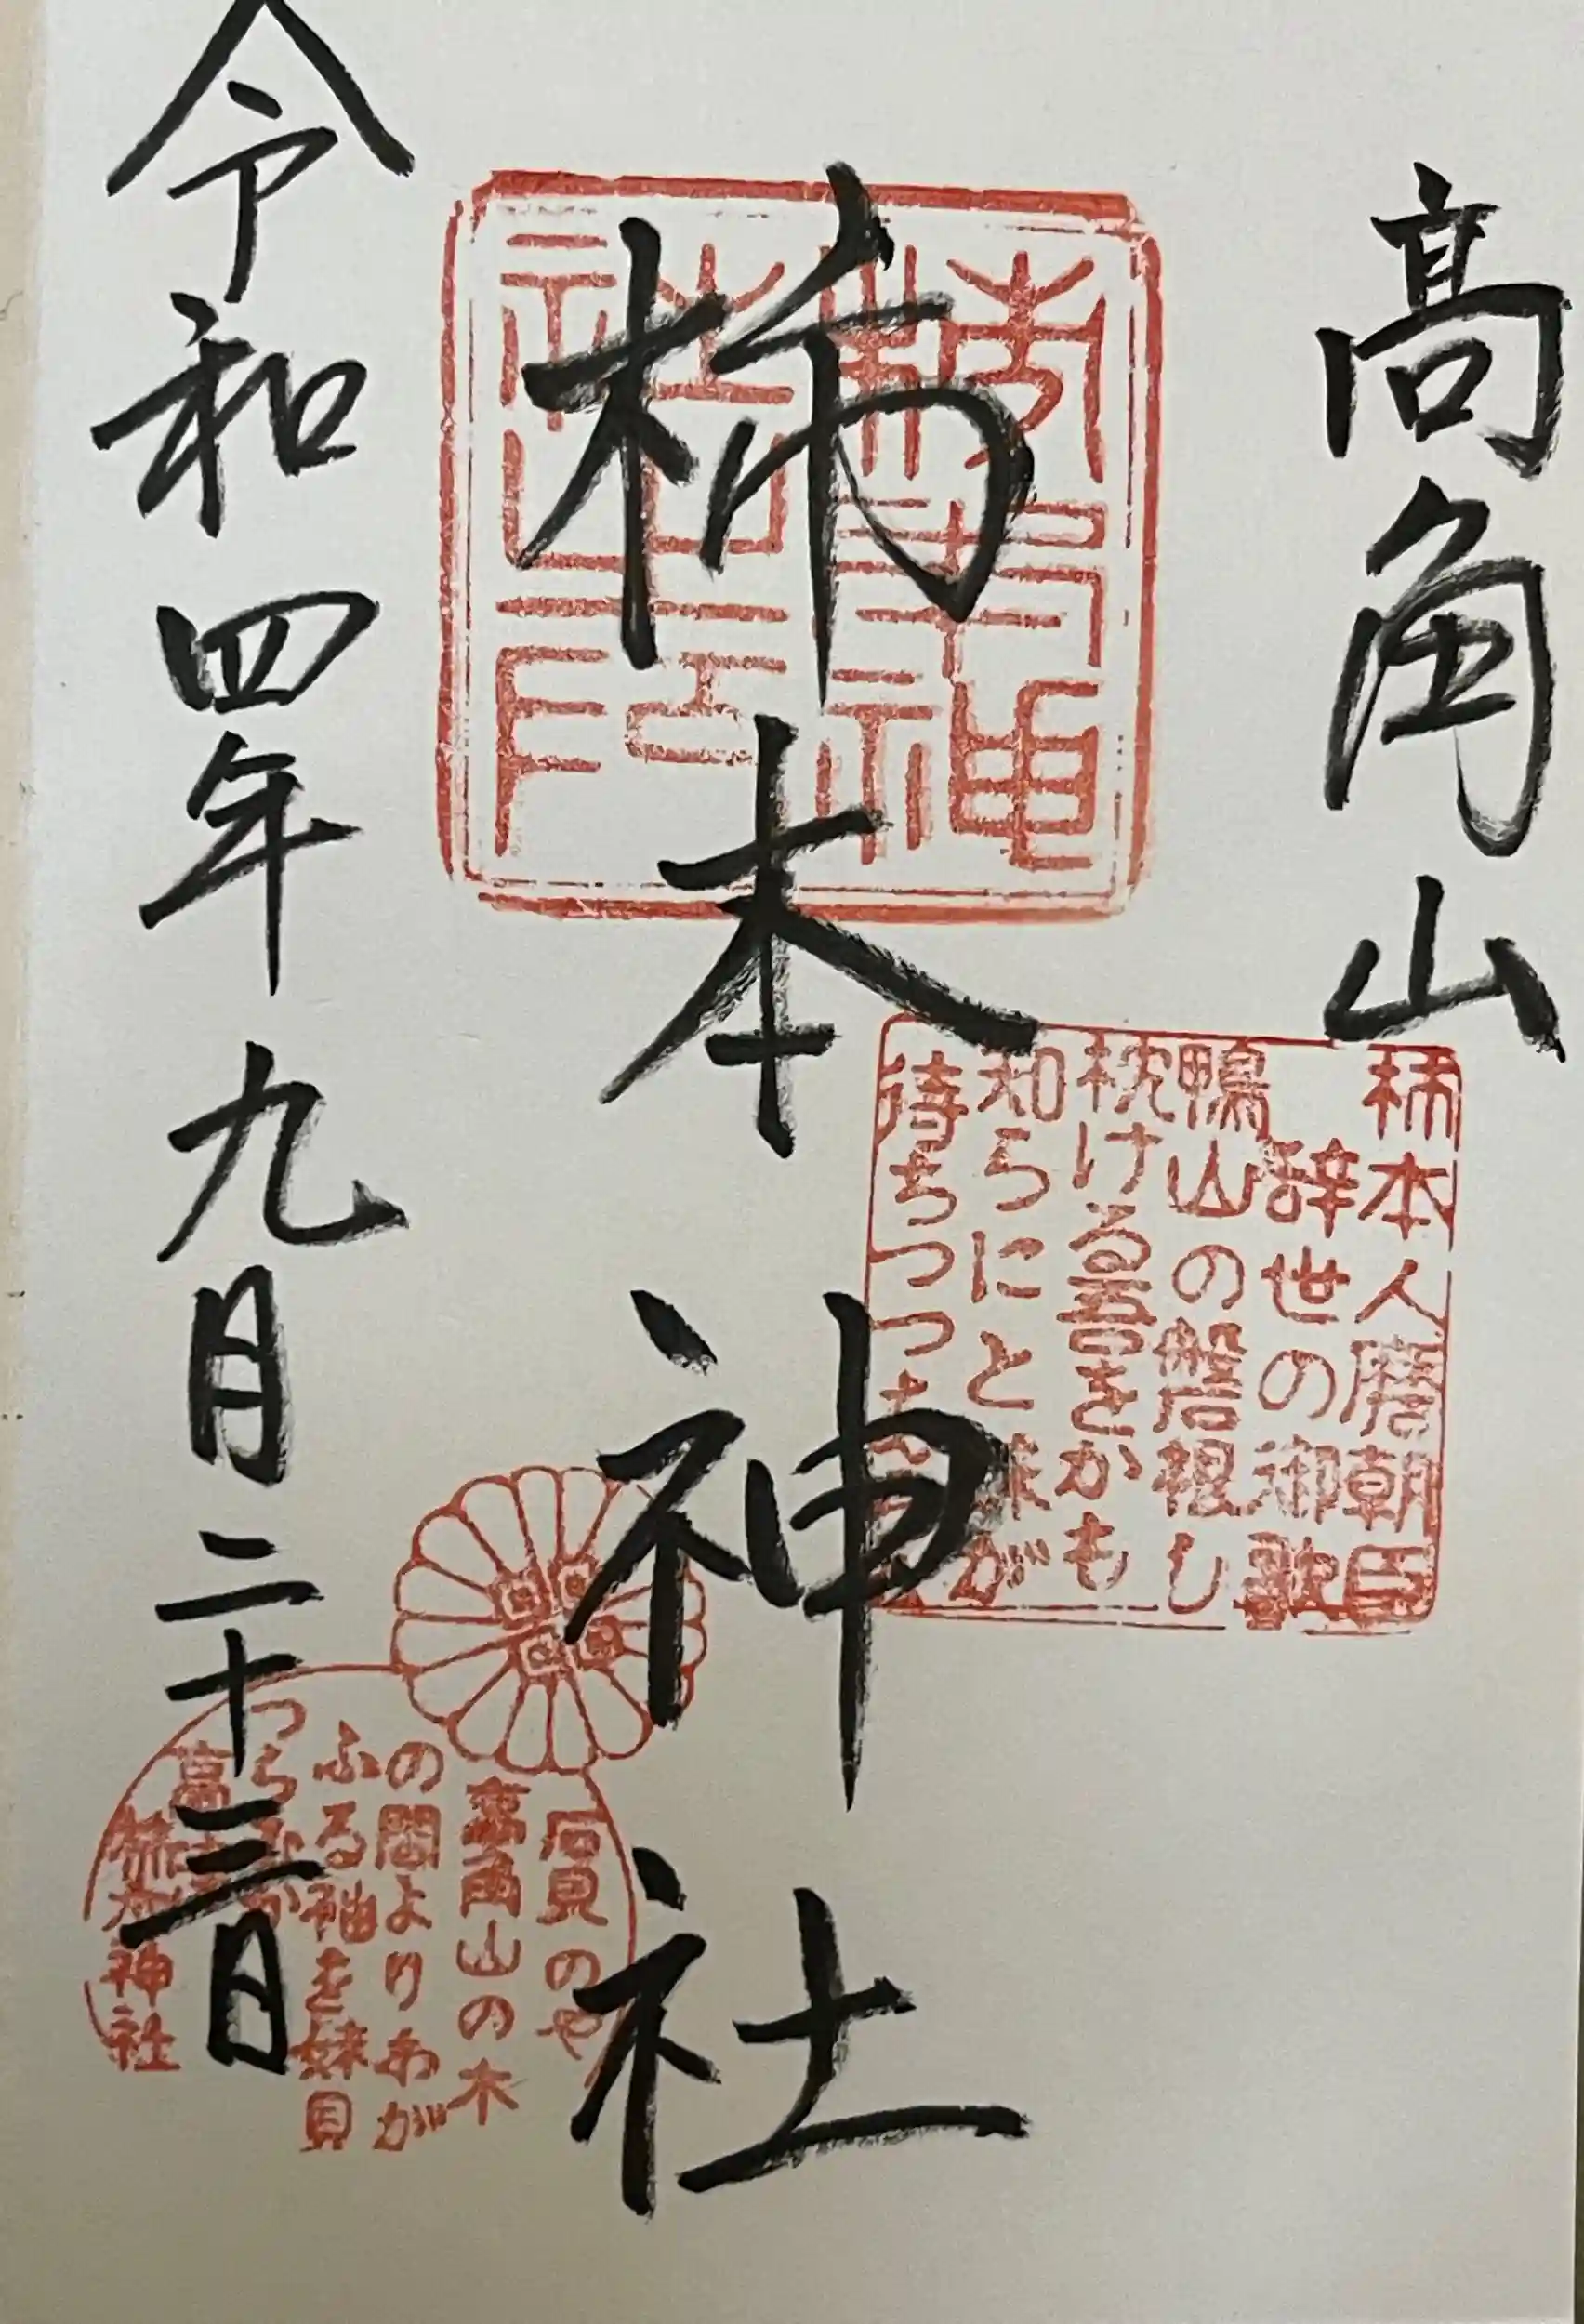 高角山
柿本神社
令和四年九月二十三日
柿本神社之印
柿本人麿朝臣
辞世の御歌
鴨山の磐根し
枕ける吾をかも
知らにと妹が
待ちつつ
石見のや
高角山の木
の間よりわが
ふる袖を妹見
つらむか
高
柿本神社